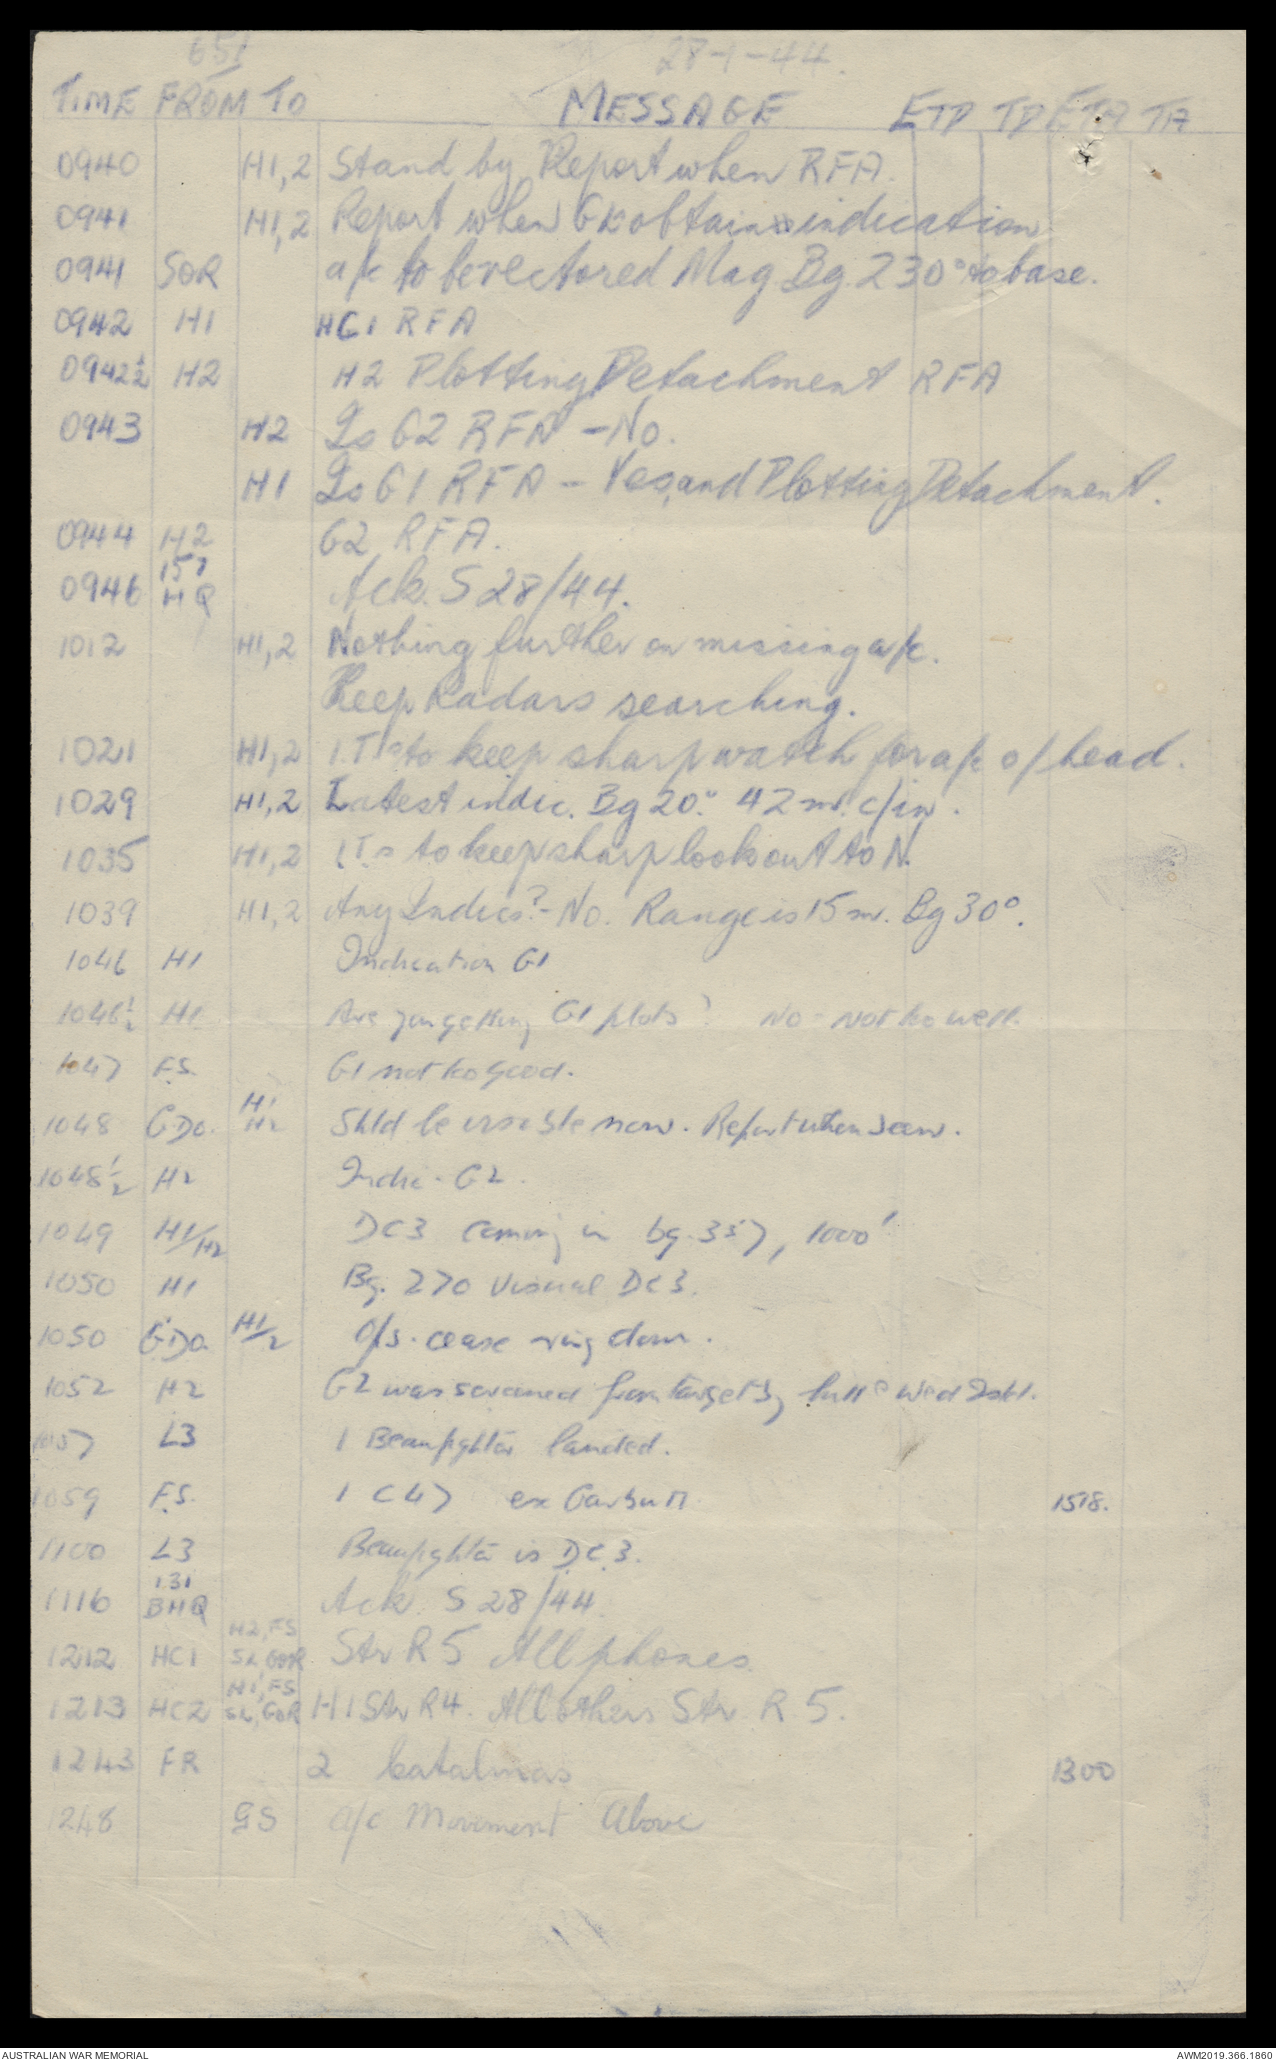 651 28-1-44.
TIME FROM TO MESSAGE ETD TD ETA TA
0940 H1,2 Stand by. Report when RFA.
0941 H1,2 Report when G x obtains indication
0941 SOR a/c to be vectored Mag Bg. 230° to base.
0942 H1 HC1 RFA
0942½ H2 H2 Plotting Detachment RFA
0943 H2 Is G2 RFA - No.
H1 Is G1 RFA - Yes, and Plotting Detachment.
0944 H2 G2 RFA.
0946 HQ Ack. S 28/44.
1012 H1,2 Nothing further on missing a/c.
Keep Radars searching.
1021 H1,2 I.T.s to keep sharp watch for a/c o/head.
1029 H1,2 Latest indic. Bg 20°. 42 m. c/in.
1035 H1,2 I.T.s to keep sharp look out to N.
1039 H1,2 Any Indics? - No. Range is 15 m. Bg 30°.
1046 H1 Indication G1
1046½ H1 Are you getting G1 plots? No - not too well.
1047 F.S. G1 not too good.
1048 G.D.O. H1 H2 Shld be visible now. Report when seen.
1048½ H2 Indic. G2.
1049 H1/H2 DC3 coming in bg. 357, 1000'
1050 H1 Bg. 270 Visual DC3.
1050 G.D.O. H1/2 O/s. cease ring down.
1052 H2 G2 was screened from target by hill
1057 L3 1 Beaufighter landed.
1059 F.S. 1 C47 ex Garbutt 1518.
1100 L3 Beaufighter is D.C.3.
1116 131 BHQ Ack. S 28/44.
1212 HC1 H2, FS SL, GOR Str R 5 All phones.
1213 HC2 H1, FS SL, GOR H1 Str R4. All others Str. R. 5.
1243 FR 2 Catalinas 1300
1248 GS a/c Movement Above
AUSTRALIAN WAR MEMORIAL AWM2019.366.1860